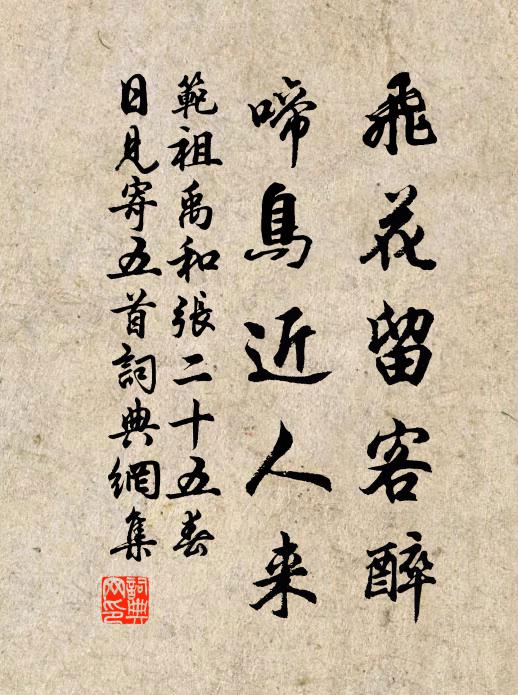 飛花留客醉
啼鳥近人来
範祖禹和張二十五春
日見寄五首詞典網集
詞典
网印